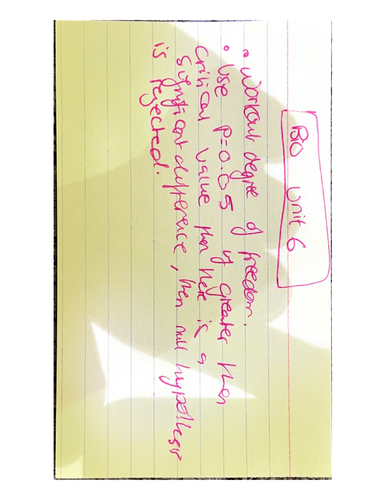 Bio Unit 6
• workout degree of freedom.
• Use P=0.05 if greater then
critical value then there is a
significant difference, then null hypothesis
is rejected.